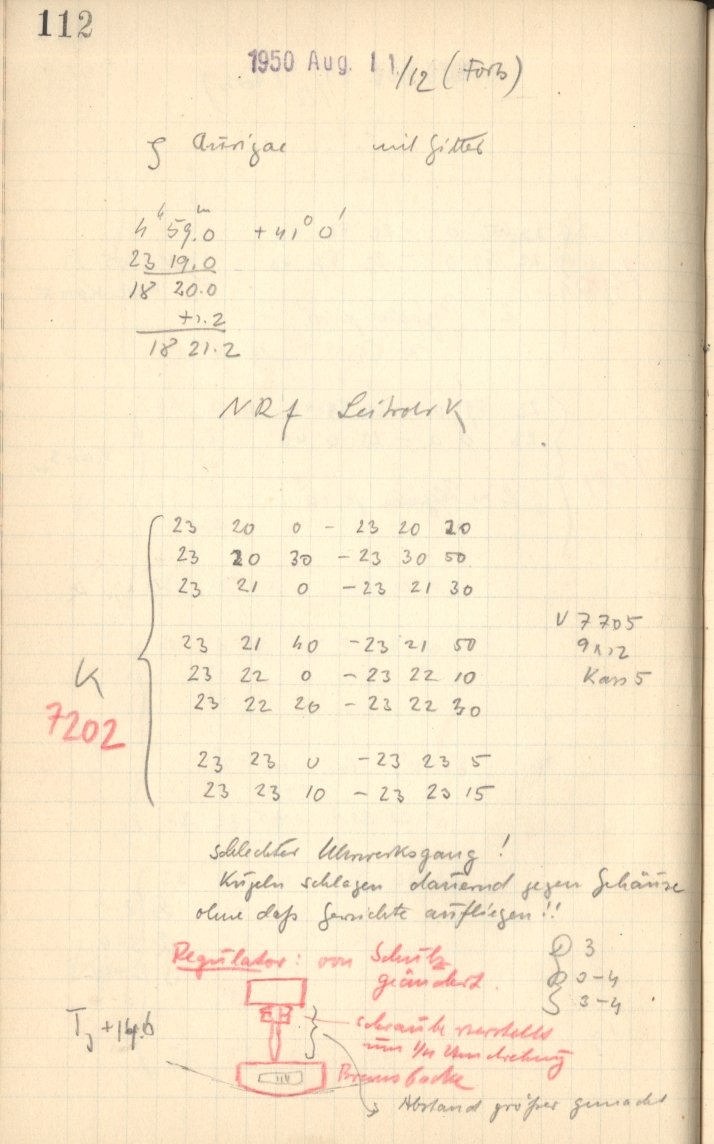 112
1950 Aug. 11/12 (Forts)
ζ Aurigae mit Gitter
4h 59.m0 +41° 0'
23 19.0
18 20.0
+1.2
18 21.2
NRf Leitrohr K
23 20 0 - 23 20 20
23 20 30 - 23 30 50
23 21 0 - 23 21 30
23 21 40 - 23 21 50
23 22 0 - 23 22 10
23 22 20 - 23 22 30
23 23 0 - 23 23 5
23 23 10 - 23 23 15
K
7202
V 7705
9x12
Kass 5
Schlechter Uhrwerksgang!
Kugeln schlagen dauernd gegen Gehäuse
ohne daß Gewichte aufliegen!!
Regulator: von Schulz
geändert.
3
3-4
3-4
T, +14.6
Schraube verstellt
um 1/4 Umdrehung
Bremsbacke
Abstand größer gemacht